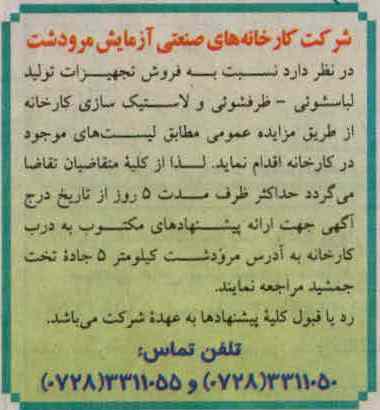 شرکت کارخانه‌های صنعتی آزمایش مرودشت
در نظر دارد نسبت به فروش تجهیزات تولید
لباسشوئی - ظرفشوئی و لاستیک سازی کارخانه
از طریق مزایده عمومی مطابق لیست‌های موجود
در کارخانه اقدام نماید. لذا از کلیهٔ متقاضیان تقاضا
می‌گردد حداکثر ظرف مدت ۵ روز از تاریخ درج
آگهی جهت ارائه پیشنهادهای مکتوب به درب
کارخانه به آدرس مرودشت کیلومتر ۵ جادهٔ تخت
جمشید مراجعه نمایند.
رد یا قبول کلیهٔ پیشنهادها به عهدهٔ شرکت می‌باشد.
تلفن تماس:
۳۳۱۱۰۵۰(۰۷۲۸) و ۳۳۱۱۰۵۵(۰۷۲۸)